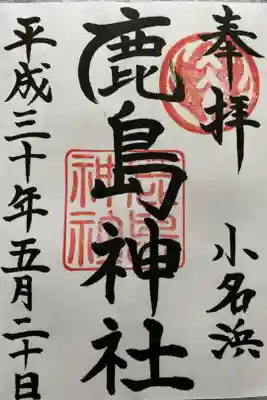 奉拝 小名浜
鹿島神社
平成三十年五月二十日
鹿島神社